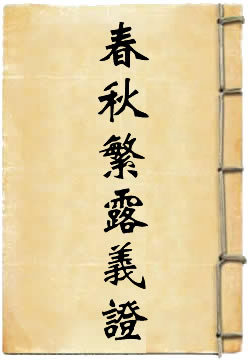 春秋繁露義證